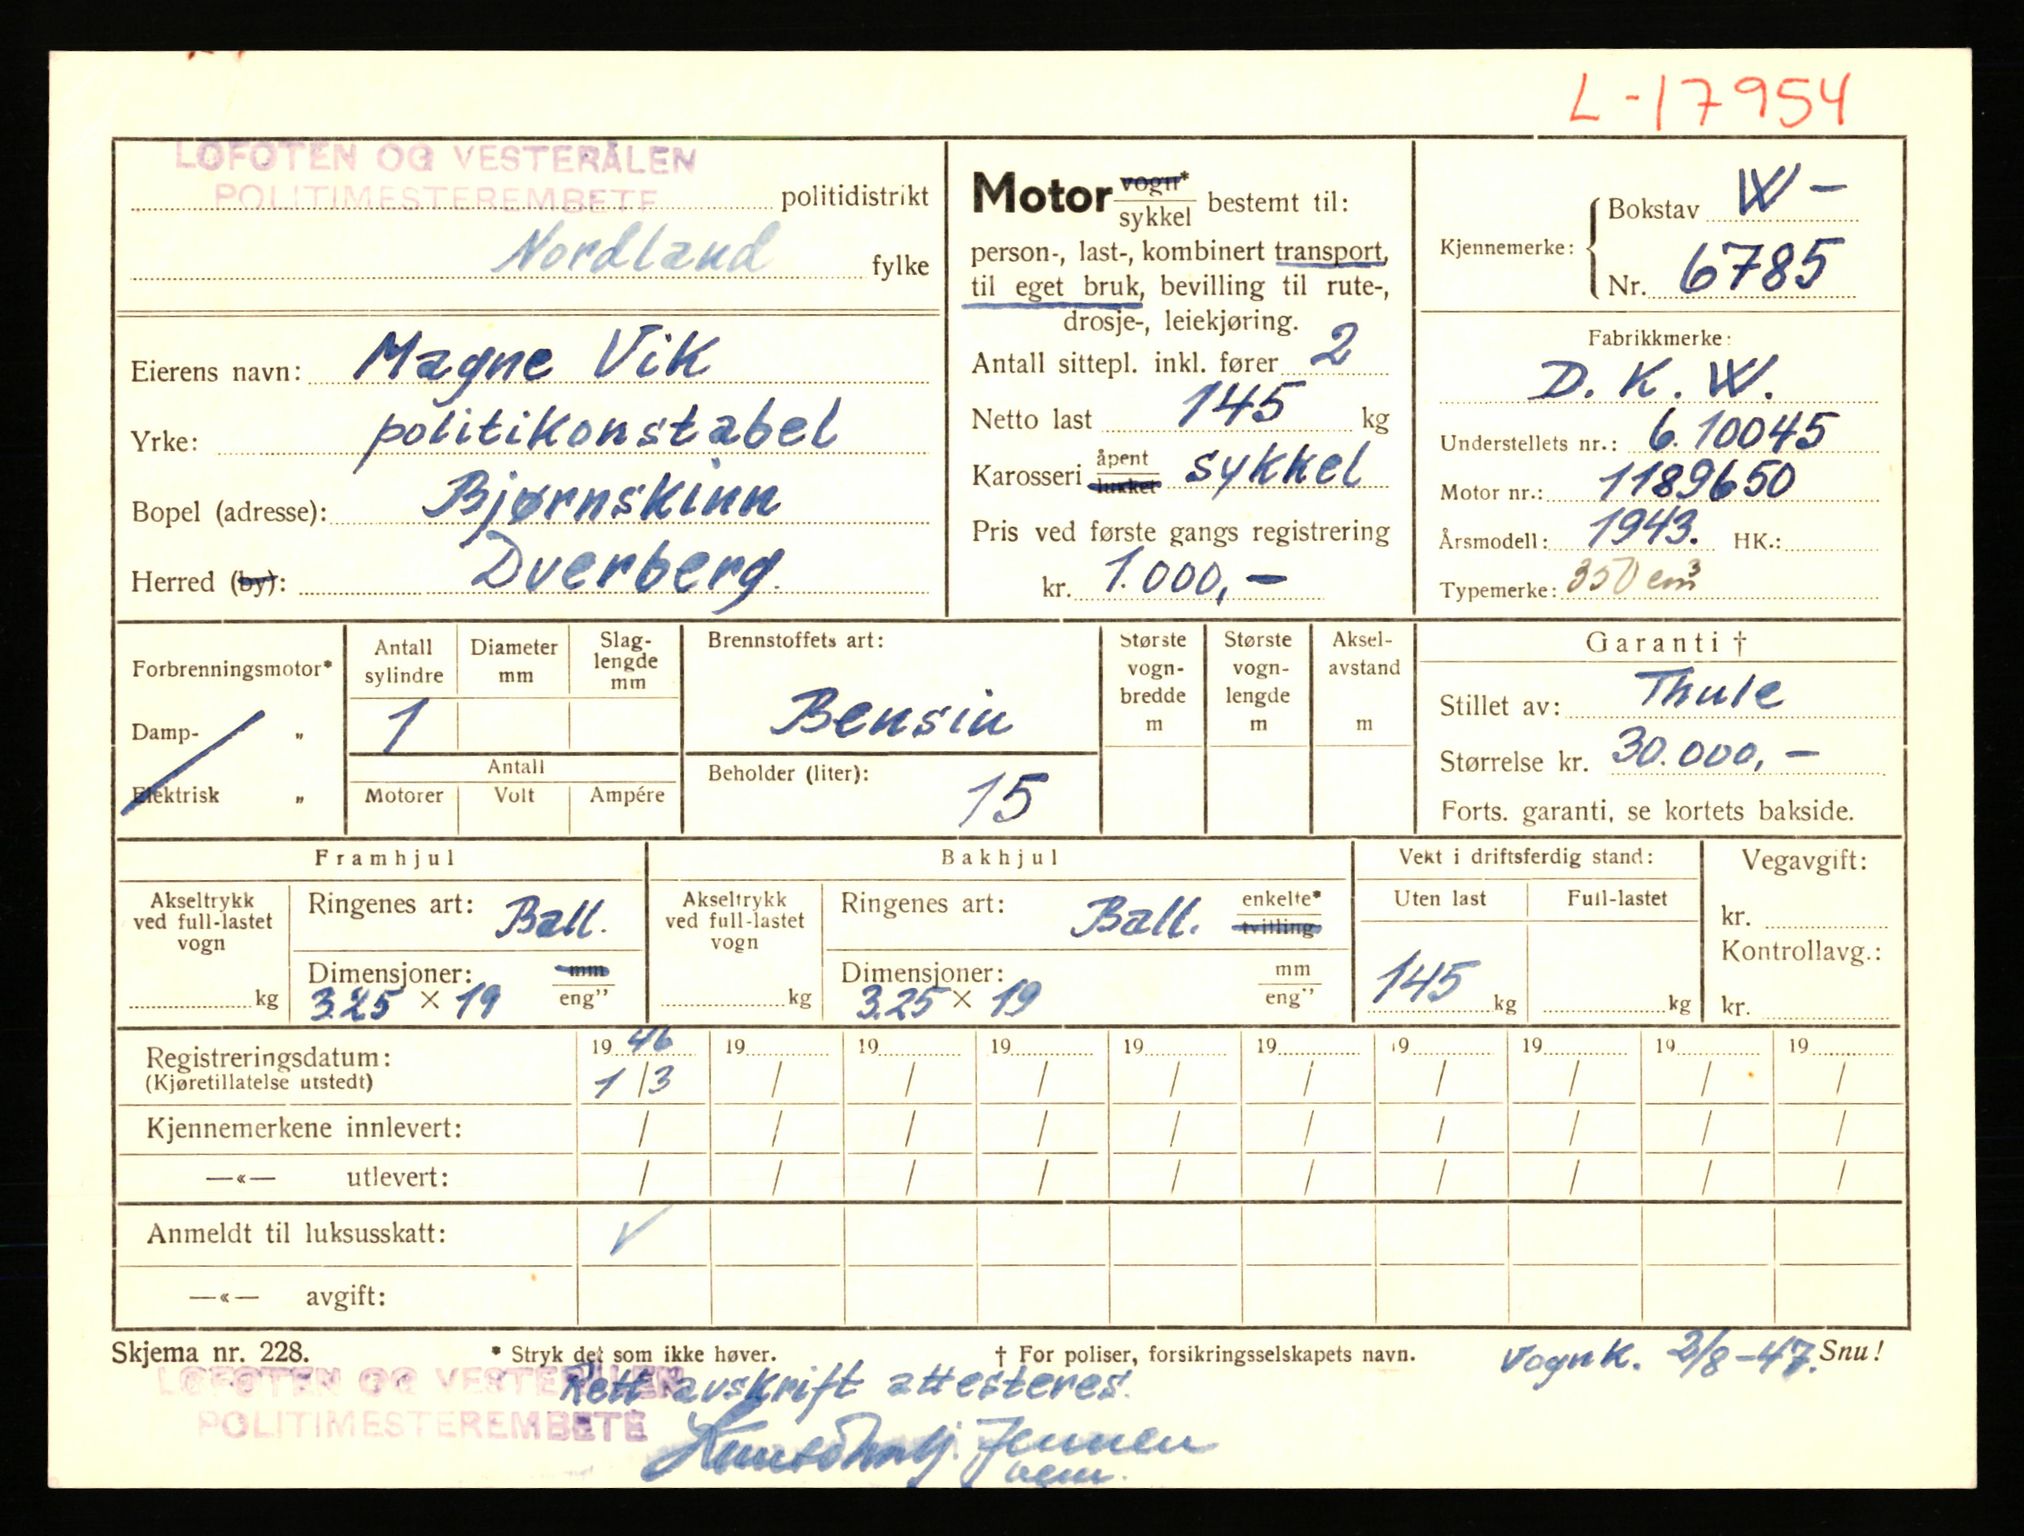 L-17954
LOFOTEN OG VESTERÅLEN
POLITIMESTEREMBETE politidistrikt
Nordland fylke
Eierens navn: Magne Vik
Yrke: politikonstabel
Bopel (adresse): Bjørnskinn
Herred (by): Dverberg.
Motor vogn* sykkel bestemt til:
person-, last-, kombinert transport,
til eget bruk, bevilling til rute-,
drosje-, leiekjøring.
Antall sittepl. inkl. fører 2
Netto last 145 kg
Karosseri åpent lukket sykkel
Pris ved første gangs registrering
kr. 1.000,-
Kjennemerke: Bokstav W-
Nr. 6785
Fabrikkmerke:
D. K. W.
Understellets nr.: 6.10045
Motor nr.: 1189650
Årsmodell: 1943. HK.:
Typemerke: 350 cm³
Forbrenningsmotor*
Damp- „
Elektrisk „
Antall sylindre
Diameter mm
Slag-lengde mm
1
Antall
Motorer Volt Ampére
Brennstoffets art:
Bensin
Beholder (liter):
15
Største vogn-bredde m
Største vogn-lengde m
Aksel-avstand m
Garanti †
Stillet av: Thule
Størrelse kr. 30.000,-
Forts. garanti, se kortets bakside.
Framhjul
Akseltrykk ved full-lastet vogn
kg
Ringenes art: Ball.
Dimensjoner: mm
3.25 × 19 eng”
Bakhjul
Akseltrykk ved full-lastet vogn
kg
Ringenes art: Ball. enkelte* tvilling
Dimensjoner: mm
3.25 × 19 eng”
Vekt i driftsferdig stand:
Uten last Full-lastet
145 kg kg
Vegavgift:
kr.
Kontrollavg.:
kr.
Registreringsdatum: 19 46 19 19 19 19 19 19 19 19 19
(Kjøretillatelse utstedt) 1/3 / / / / / / / / /
Kjennemerkene innlevert: / / / / / / / / / /
—«— utlevert: / / / / / / / / / /
Anmeldt til luksusskatt: √
—«— avgift:
Skjema nr. 228. * Stryk det som ikke høver. † For poliser, forsikringsselskapets navn. Vognk. 2/8-47. Snu!
LOFOTEN OG VESTERÅLEN
POLITIMESTEREMBETE
Rett avskrift attesteres.